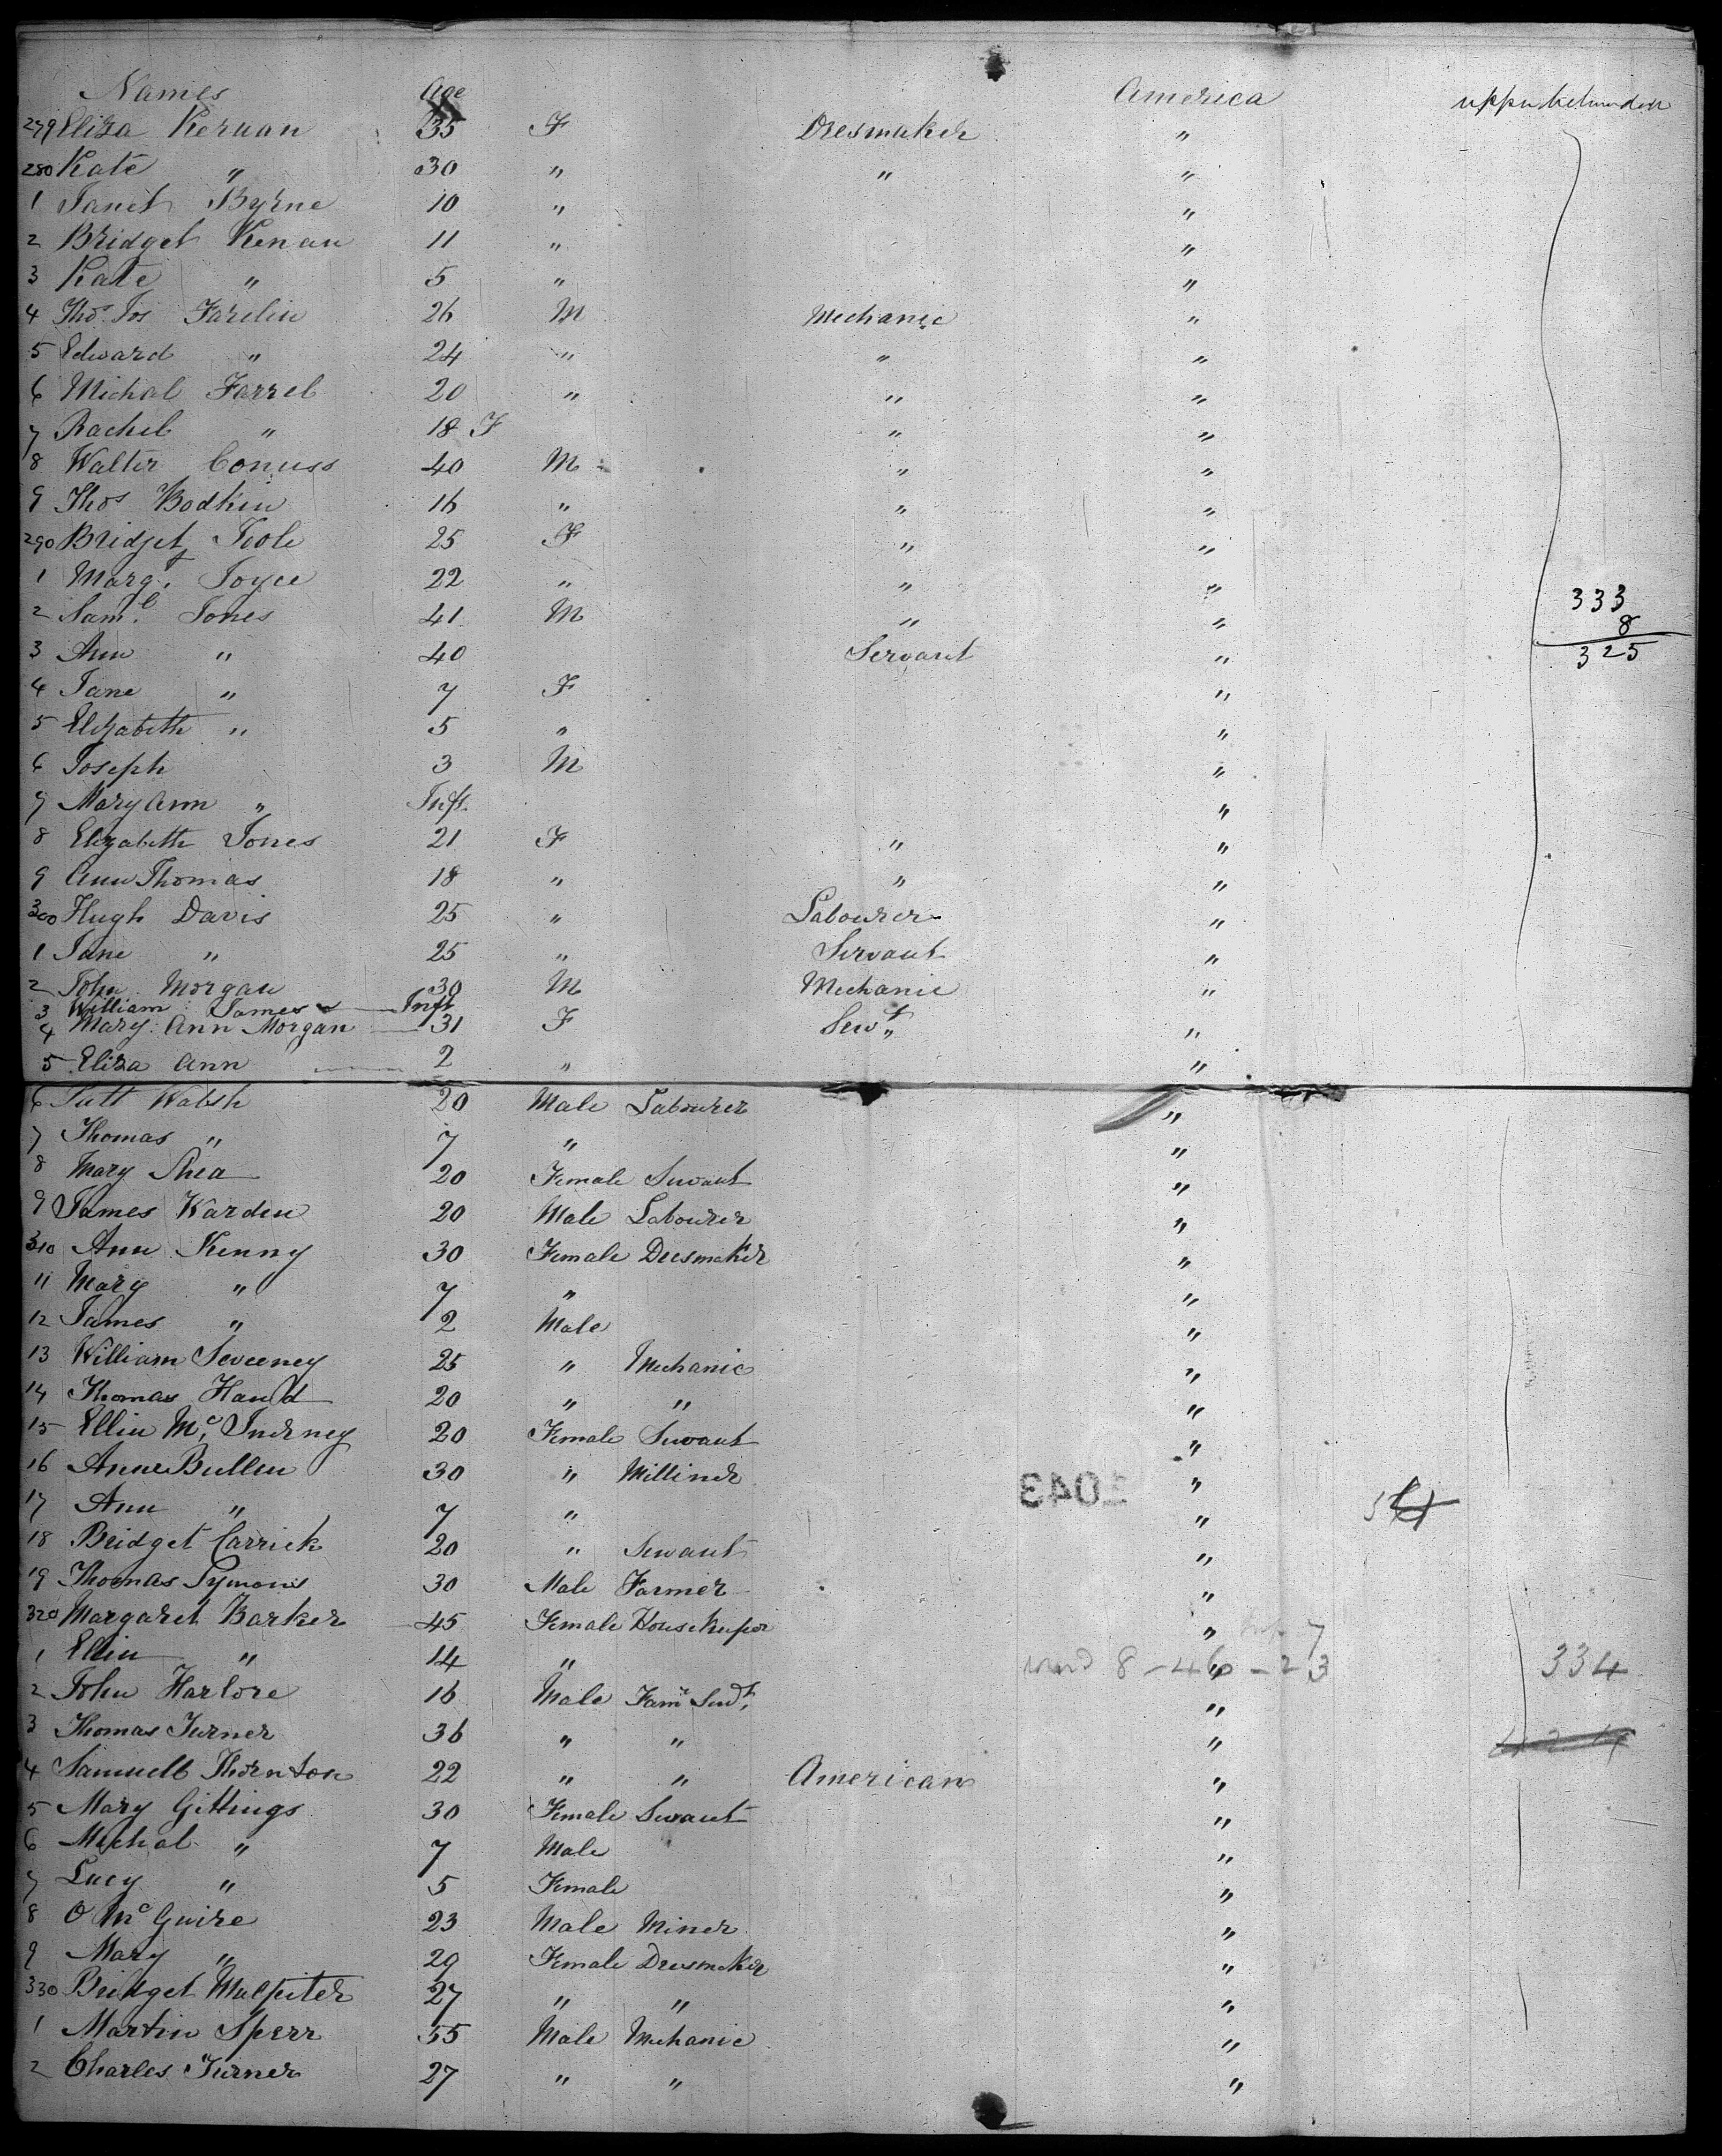 Names Age America upper between deck
279 Eliza Kernan 35 F Dresmaker "
280 Kate " 30 " " "
1 Janet Byrne 10 " "
2 Bridget Kenan 11 " "
3 Kate " 5 " "
4 Thos Jos Farelin 26 M Mechanic "
5 Edward " 24 " " "
6 Michal Farrel 20 " " "
7 Rachel " 18 F " "
8 Walter 40 M " "
9 Thos Bodkin 16 " " "
290 Bridget Toole 25 F " "
1 Margt Joyce 22 " " "
2 Saml Jones 41 M " " 333
8
3 Ann " 40 Servant " 325
4 Jane " 7 F "
5 Elizabeth " 5 " "
6 Joseph 3 M "
7 Mary Ann " Inft "
8 Elizabeth Jones 21 F " "
9 Ann Thomas 18 " " "
300 Hugh Davis 25 " Labourer "
1 Jane " 25 " Servant "
2 John Morgan 30 M Mechanic "
3 William James Inft
4 Mary Ann Morgan 31 F Servt "
5 Eliza Ann 2 " "
6 Walsh 20 Male Labourer "
7 Thomas " 7 " "
8 Mary Shea 20 Female Servant "
9 James Warden 20 Male Labourer "
310 Ann Kenny 30 Female Dresmaker "
11 Mary " 7 " "
12 James " 2 Male "
13 William Sweeney 25 " Mechanic "
14 Thomas Hand 20 " " "
15 Ellin Mc Inerney 20 Female Servant "
16 Anne Bullen 30 " Milliner "
1043
17 Ann " 7 " "
18 Bridget Carrick 20 " Servant "
19 Thomas Symons 30 Male Farmer "
320 Margaret Barker 45 Female Housekeeper "
1 Ellin " 14 " " 8-46-23 334
2 John Harlore 16 Male Farm Servt "
3 Thomas Turner 36 " " "
4 Samuell Thornton 22 " " American "
5 Mary Gittings 30 Female Servant "
6 Michal " 7 Male "
7 Lucy " 5 Female "
8 O McGuire 23 Male Miner "
9 Mary " 29 Female Dresmaker "
330 Bridget Mulpiter 27 " " "
1 Martin Sperr 55 Male Mechanic "
2 Charles Turner 27 " " "